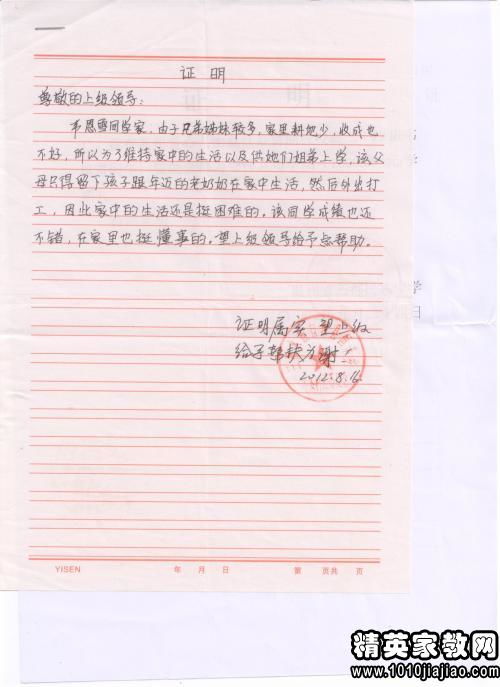 证明
尊敬的上级领导:
韦恩雪同学家,由于兄弟姊妹较多,家里耕地少,收成也
不好,所以为了维持家中的生活以及供她们姐弟上学,该父
母只得留下孩子跟年迈的老奶奶在家中生活,然后外出打
工,因此家中的生活还是挺困难的。该同学成绩也还
不错,在家里也挺懂事的。望上级领导给予点帮助。
证明属实 望上级
给予帮扶为谢!
2012.8.16
YISEN 年 月 日 第 页共 页
精英家教网
www.1010jiajiao.com